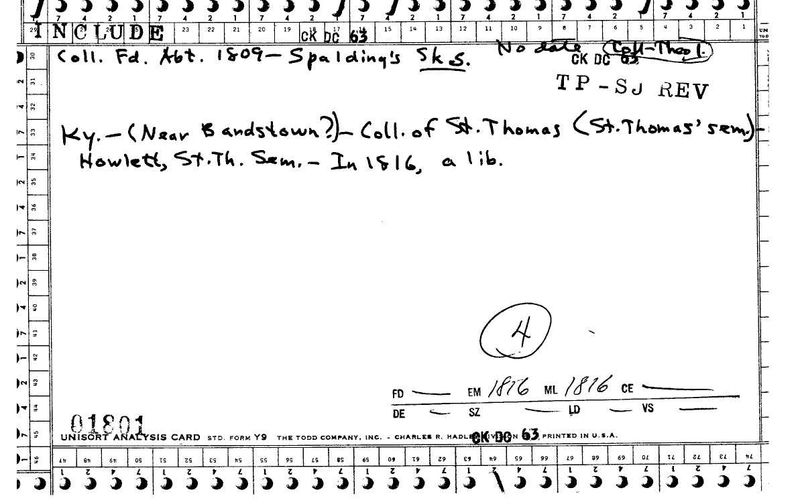 INCLUDE
CK DC 63
Coll. Fd. Abt. 1809 — Spalding's Sks. No date (Coll-Theol.)
CK DC 63
TP-SJ REV
Ky. — (Near Bandstown?) — Coll. of St. Thomas (St. Thomas' sem.) —
Howlett, St. Th. Sem. — In 1816, a lib.
4
FD — EM 1816 ML 1816 CE —
DE — SZ — LD — VS —
01801
UNISORT ANALYSIS CARD STD. FORM Y9 THE TODD COMPANY, INC. - CHARLES R. HADL CK DC 63 PRINTED IN U.S.A.